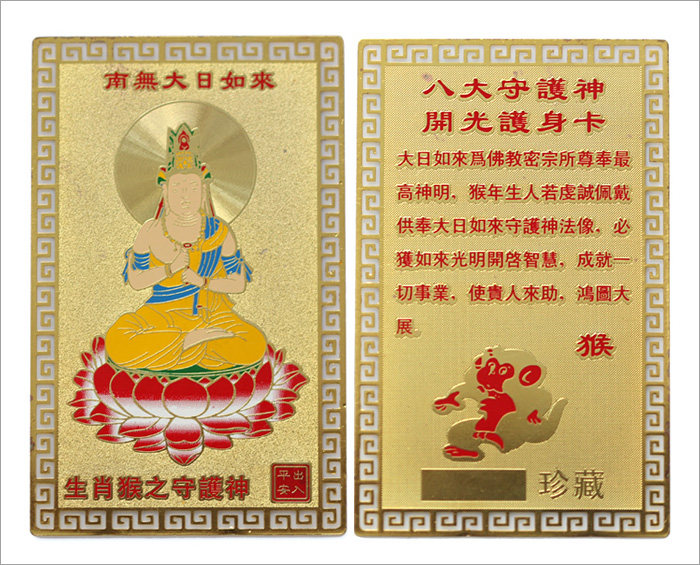 南無大日如來
生肖猴之守護神
出入
平安
八大守護神
開光護身卡
大日如來爲佛教密宗所尊奉最
高神明，猴年生人若虔誠佩戴
供奉大日如來守護神法像，必
獲如來光明開啓智慧，成就一
切事業，使貴人來助，鴻圖大
展。
猴
珍藏